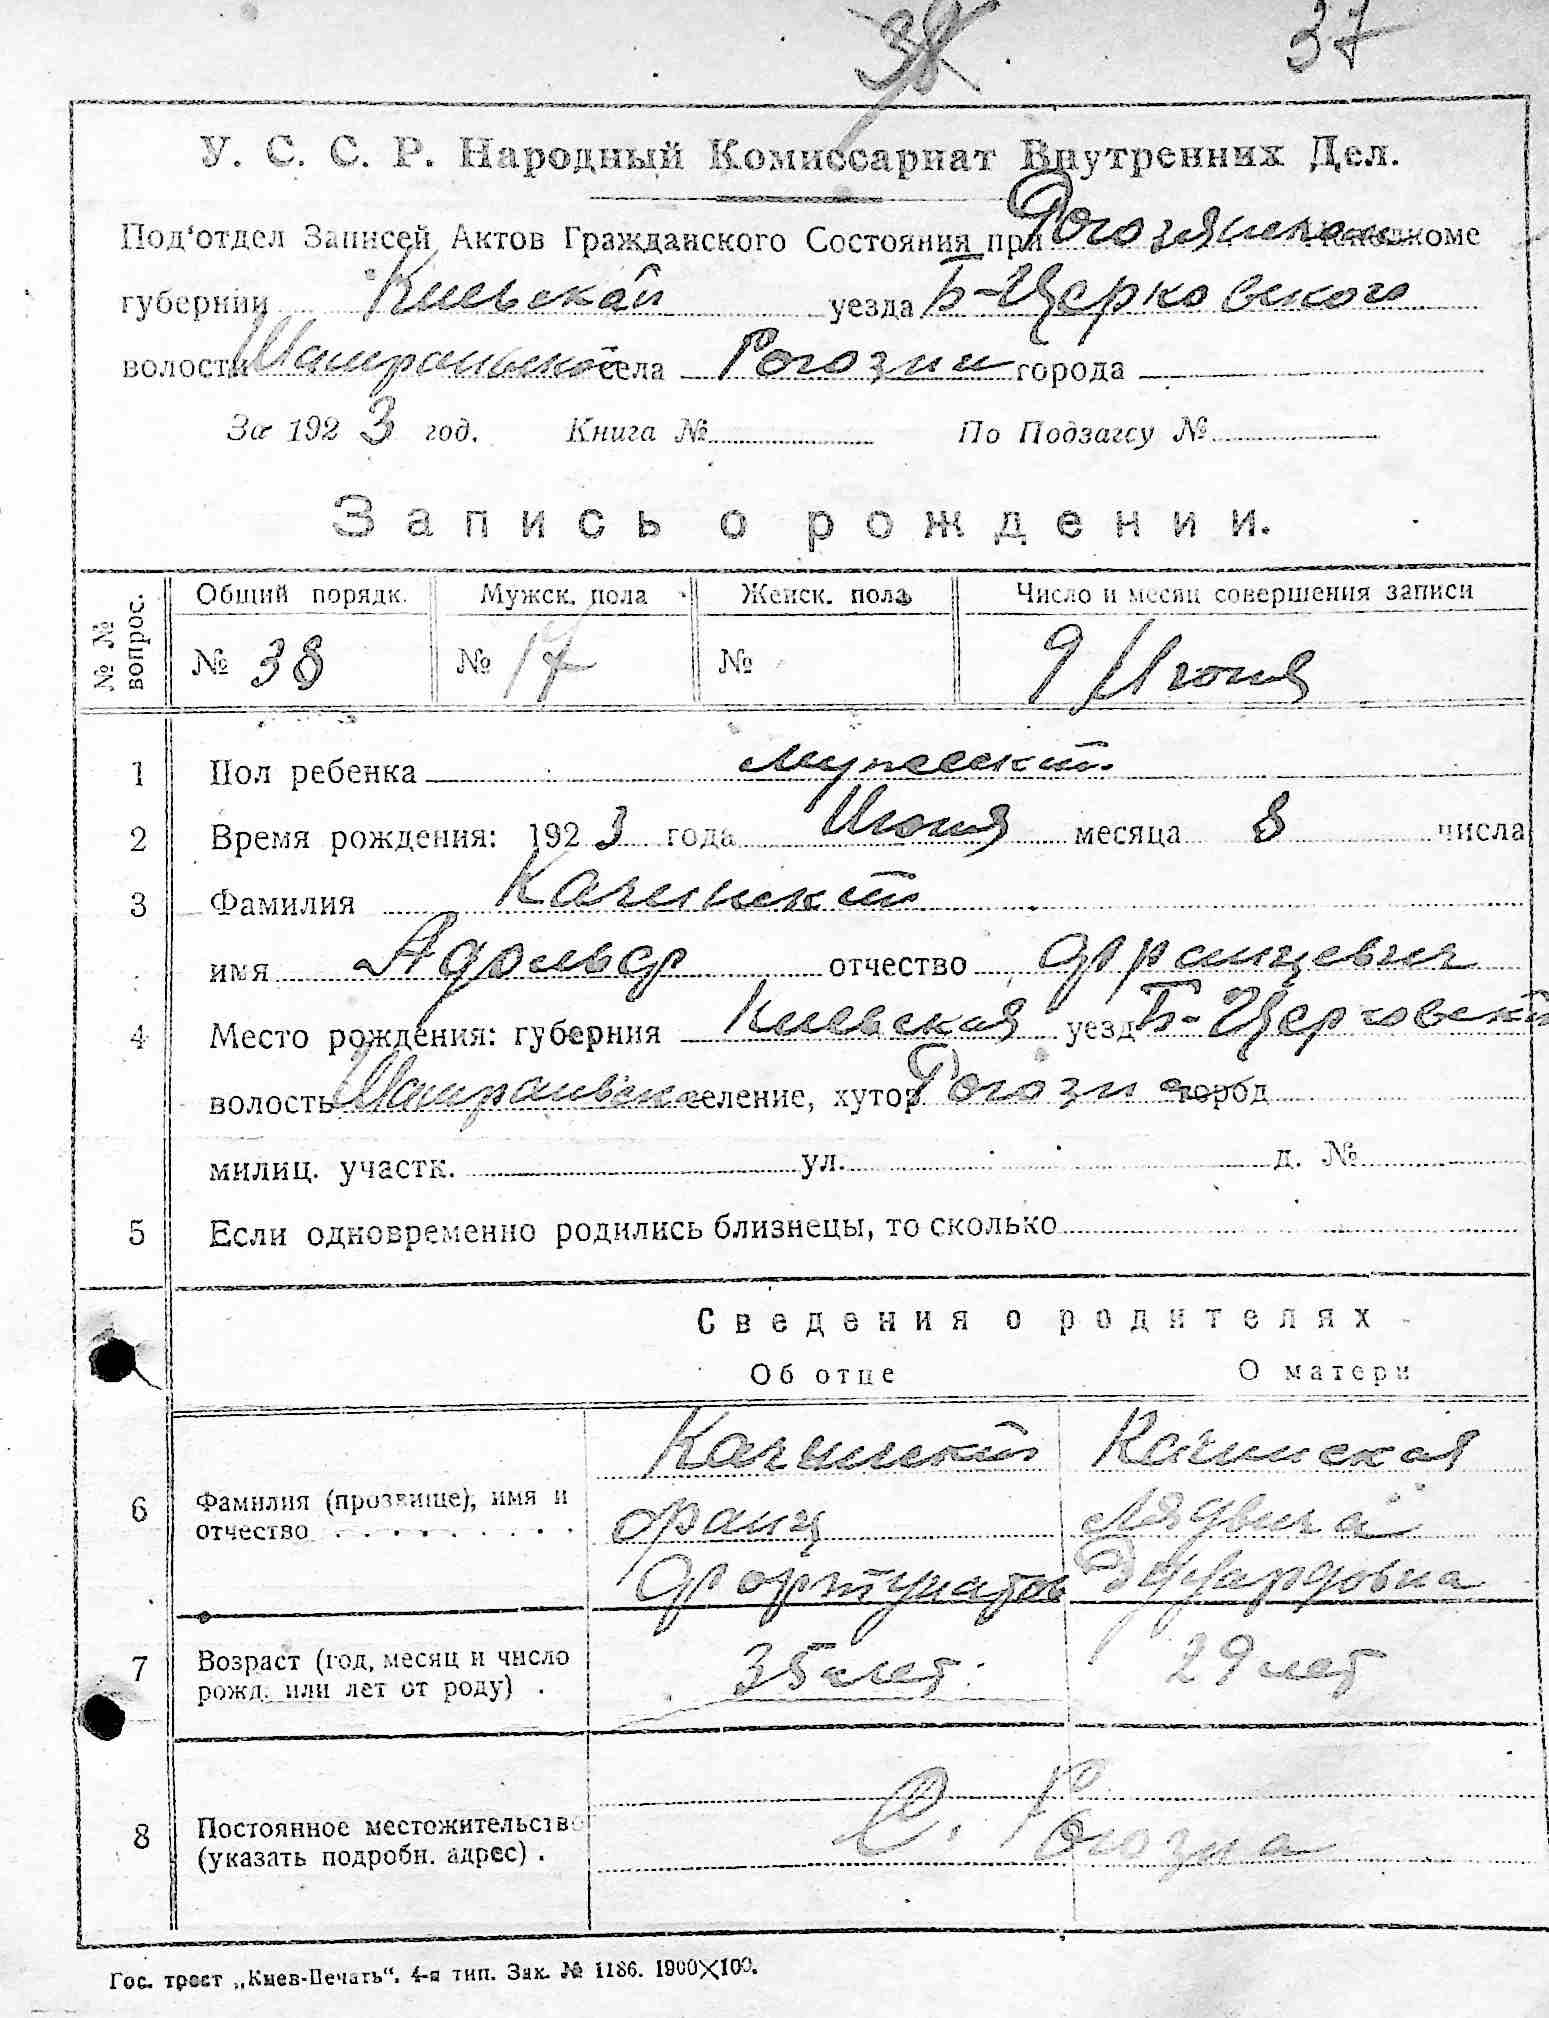 38
37
У. С. С. Р. Народный Комиссариат Внутренних Дел.
Под'отдел Записей Актов Гражданского Состояния при Рогозянском
губернии Киевской уезда Б-Церковского
волости села Рогозни города
За 1923 год. Книга № По Подзагсу №
Запись о рождении.
№ № вопрос.
Общий порядк. Мужск. пола Женск. пола Число и месяц совершения записи
№ 38 № 17 № 9 Июня
1 Пол ребенка мужеский
2 Время рождения: 1923 года Июня месяца 8 числа
3 Фамилия Качинский
имя Адольф отчество Францевич
4 Место рождения: губерния Киевская уезд Б-Церковский
волость селение, хутор Рогозна город
милиц. участк. ул. д. №
5 Если одновременно родились близнецы, то сколько
Сведения о родителях
Об отце О матери
Качинский Качинская
6 Фамилия (прозвище), имя и отчество Франц Лядвига
Фортунатов Эдуардовна
7 Возраст (год, месяц и число рожд. или лет от роду) . 35 лет. 29 лет
8 Постоянное местожительство (указать подробн. адрес) . С. Рогозна
Гос. трест „Киев-Печать“. 4-я тип. Зак. № 1186. 1900×100.